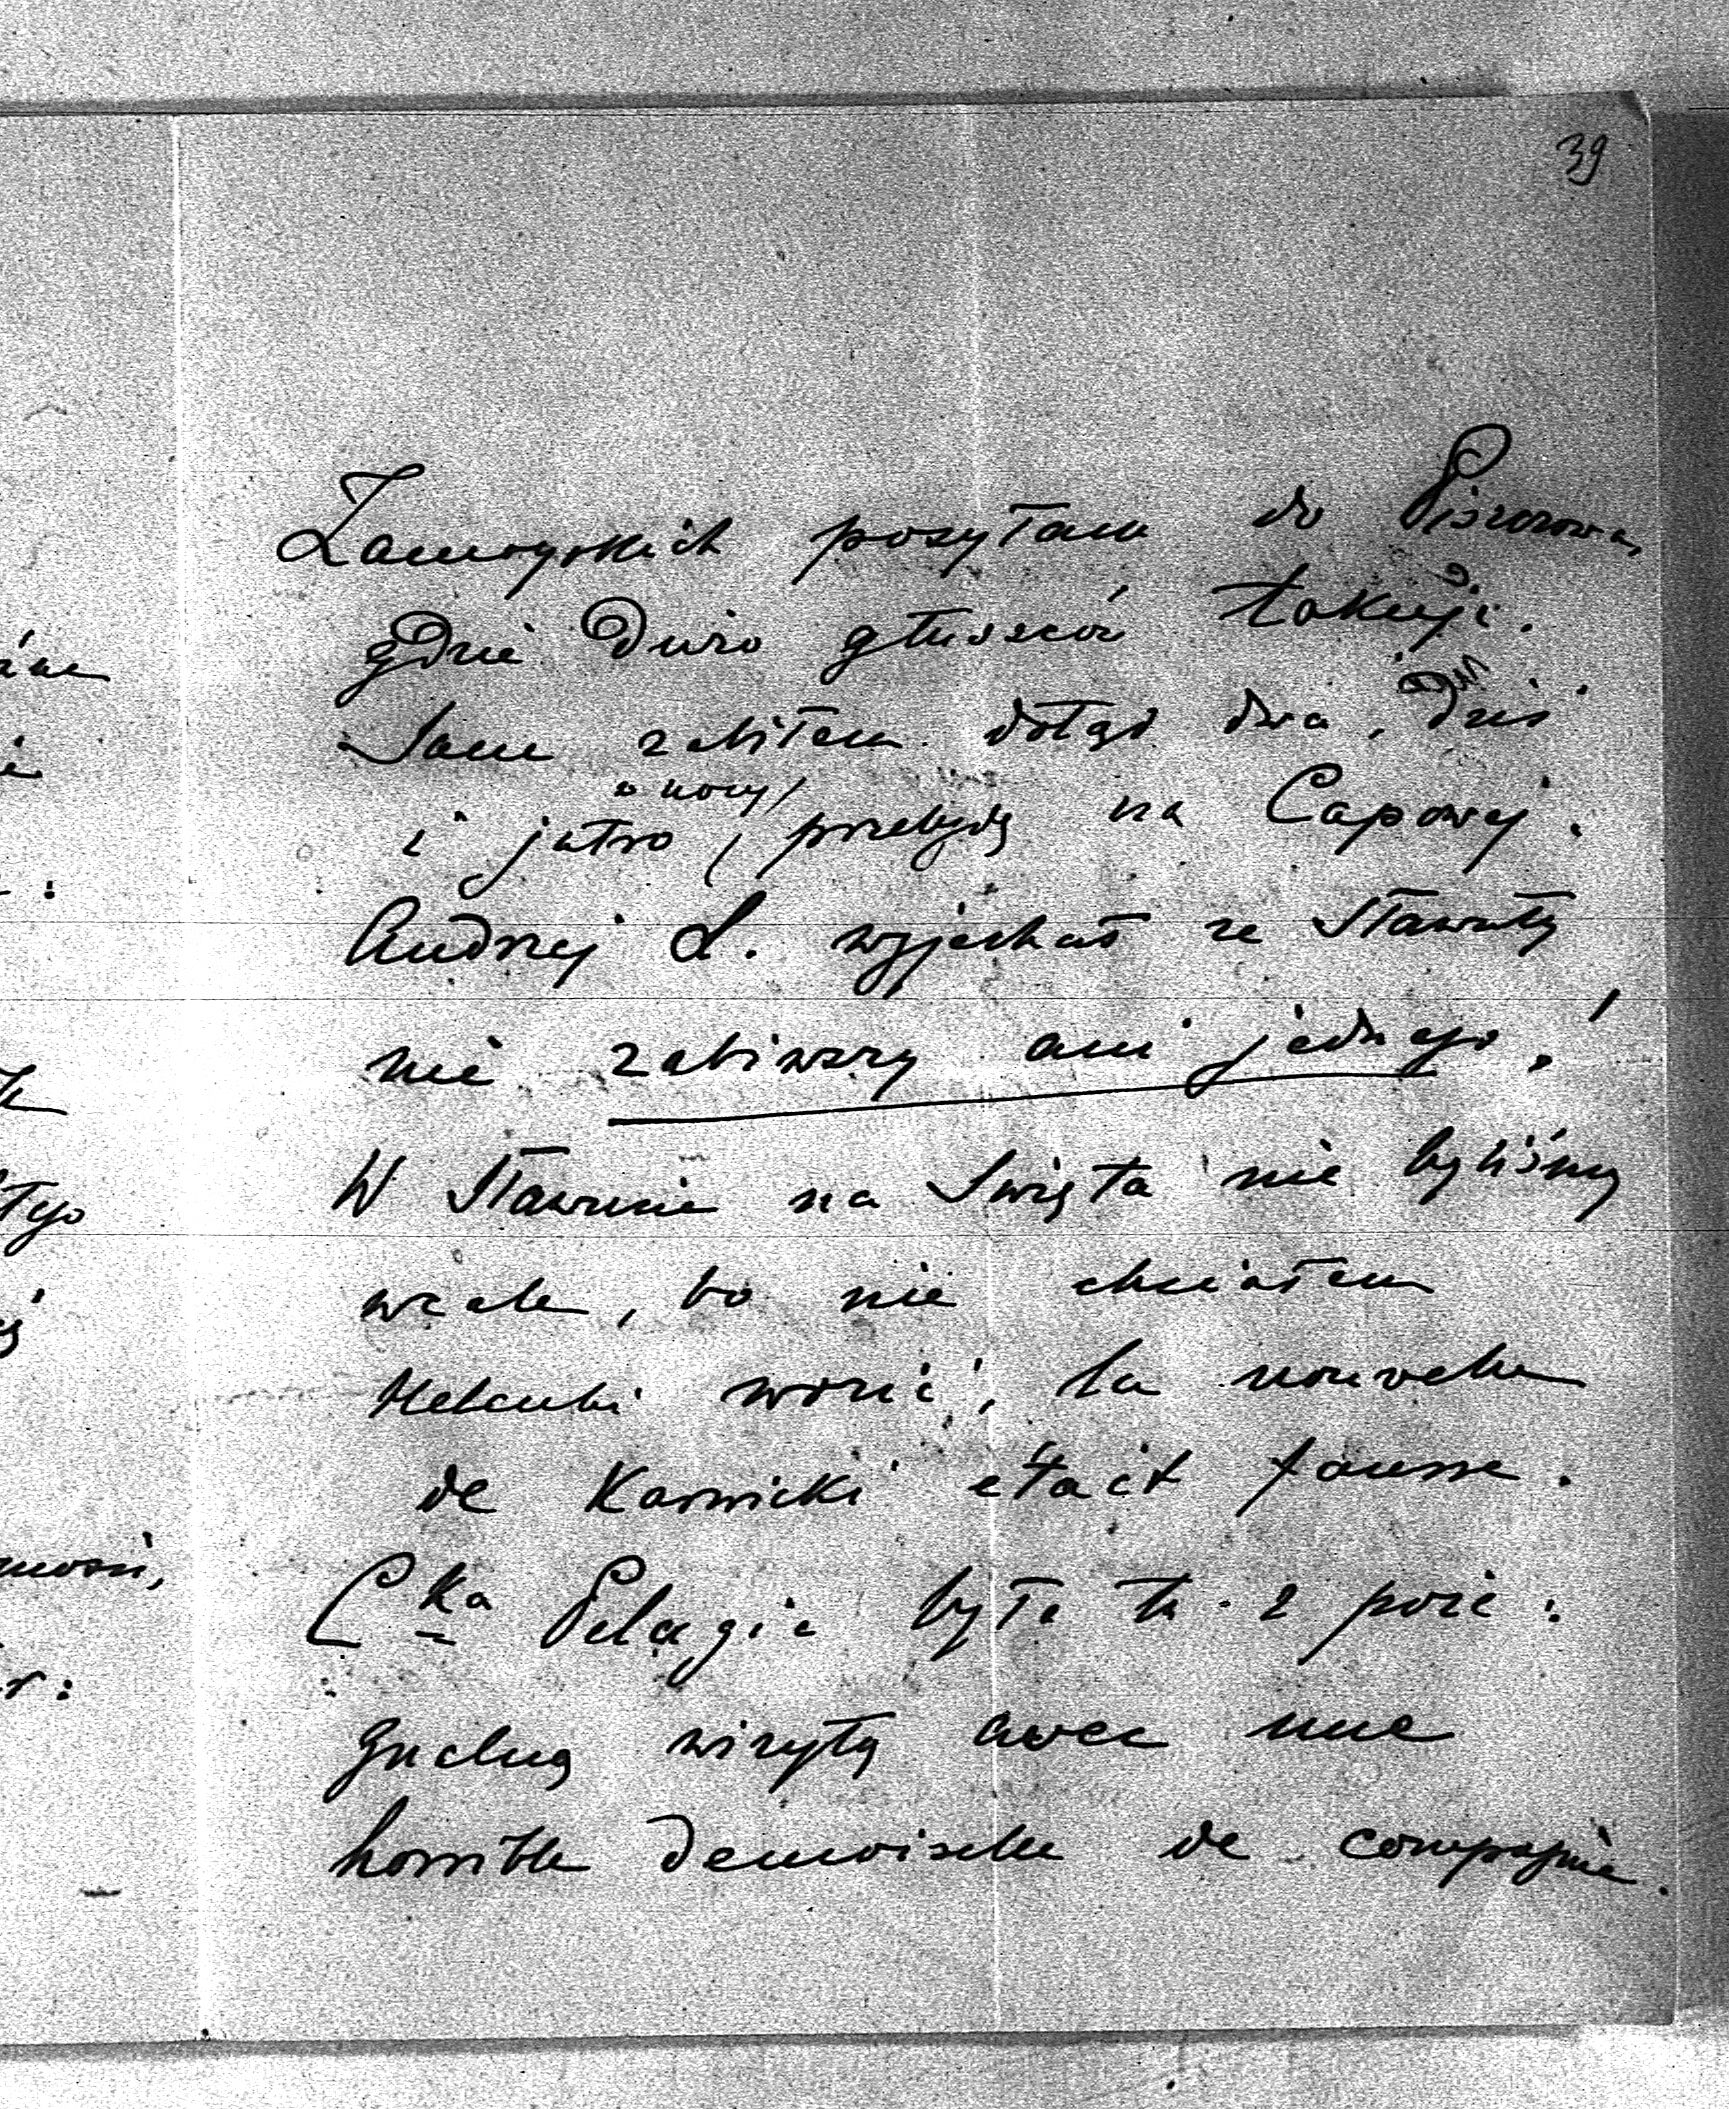 39
Zamoyskich posyłam do Piszczowa,
gdzie dużo głuszców tokuje.
Sam zabiłem dotąd dwa, dziś
i jutro (w nocy) przebędę na Capowej.
Andrzej L. wyjechał ze Sławuty
nie zabiwszy ani jednego!
W Sławucie na Święta nie byliśmy
wcale, bo nie chciałem
Helenki wozić, la nouvelle
de Karnicki était fausse.
Cka Pelagie była tu z poże:
gnalną wizytą avec une
horrible demoiselle de compagnie.